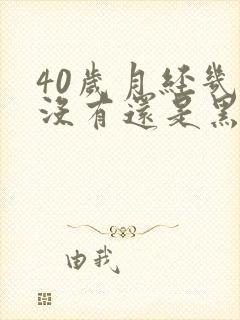 40歲月經幾
沒有還是黑
由我